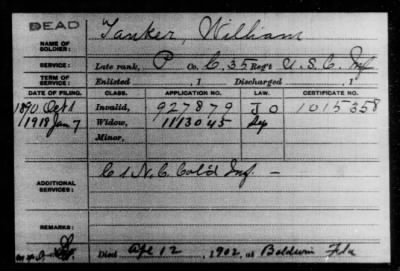 DEAD
NAME OF SOLDIER: Tanker, William
SERVICE: Late rank, P Co. C. 35 Reg't U.S.C. Inf
TERM OF SERVICE: Enlisted , 1 Discharged , 1
DATE OF FILING. CLASS. APPLICATION NO. LAW. CERTIFICATE NO.
1890 Oct 1 Invalid, 927879 J O 1015358
1918 Jan 7 Widow, 1113045
Minor,
ADDITIONAL SERVICES: C 1 N.C. Col'd Inf. —
REMARKS:
Died Apr 12, 1902, at Baldwin Fla